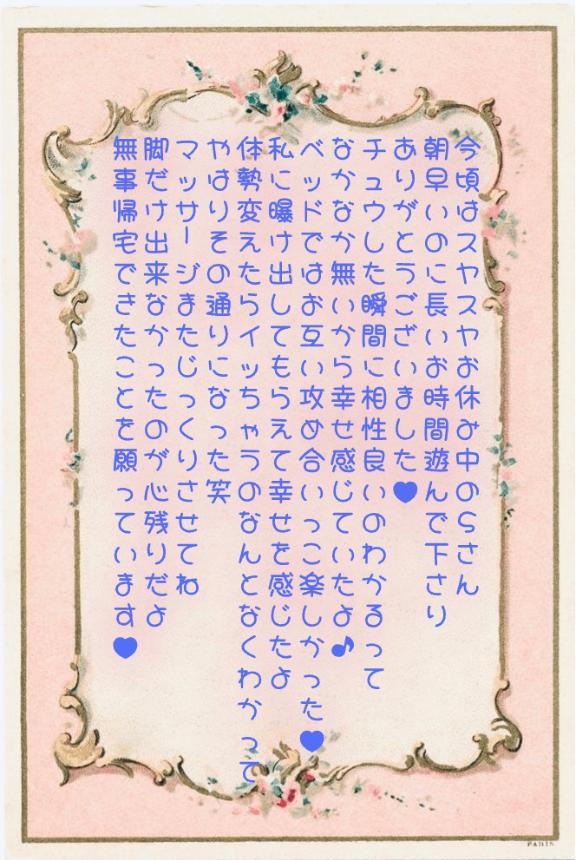 今頃はスヤスヤお休み中のSさん
朝早いのに長いお時間遊んで下さり
ありがとうございました♥
チュウした瞬間に相性良いのわかるって
なかなか無いから幸せ感じていたよ♪
ベッドではお互い攻め合いっこ楽しかった♥
私に曝け出してもらえて幸せを感じたよ
体勢変えたらイッちゃうのなんとなくわかって
やはりその通りになった笑
マッサージまたじっくりさせてね
脚だけ出来なかったのが心残りだよ
無事帰宅できたことを願っています♥
PARIS